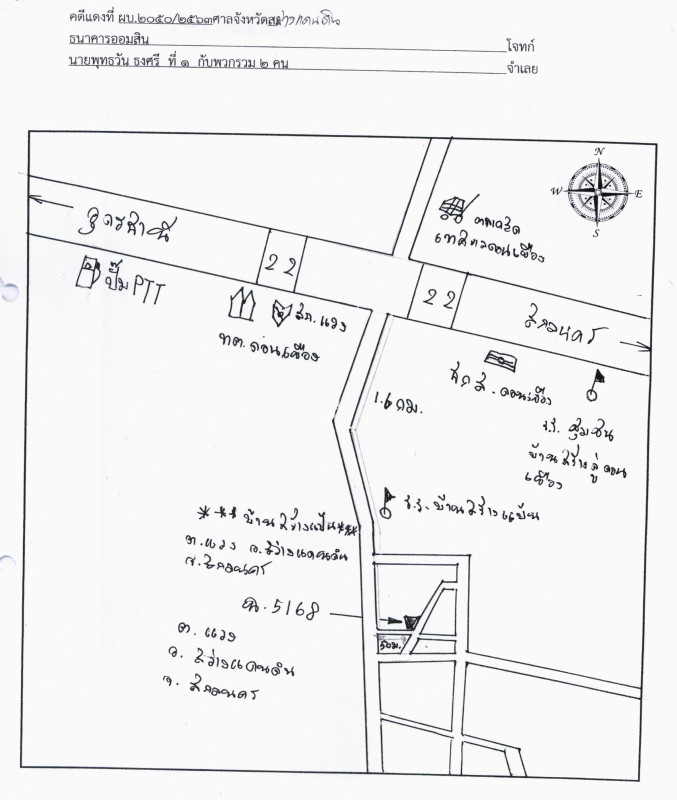 คดีแดงที่ ผบ.๒๐๕๐/๒๕๖๓ศาลจังหวัดสว่างแดนดิน
ธนาคารออมสิน โจทก์
นายพุทธวัน ธงศรี ที่ ๑ กับพวกรวม ๒ คน จำเลย
N
W E
S
ตลาดสด
เทศบาลดอนเขือง
อุดรธานี
22
22
สกลนคร
ปั๊ม PTT
สภ.แวง
ทต.ดอนเขือง
1.6 กม.
ดอนเขือง
ร.ร. ชุมชน
บ้านสร้างคู่ดอน
เขือง
ร.ร. บ้านสร้างแป้น
*** บ้านสร้างแป้น***
ต.แวง อ.สว่างแดนดิน
จ.สกลนคร
ฉ. 5168
ต. แวง
อ. สว่างแดนดิน
จ. สกลนคร
50ม.